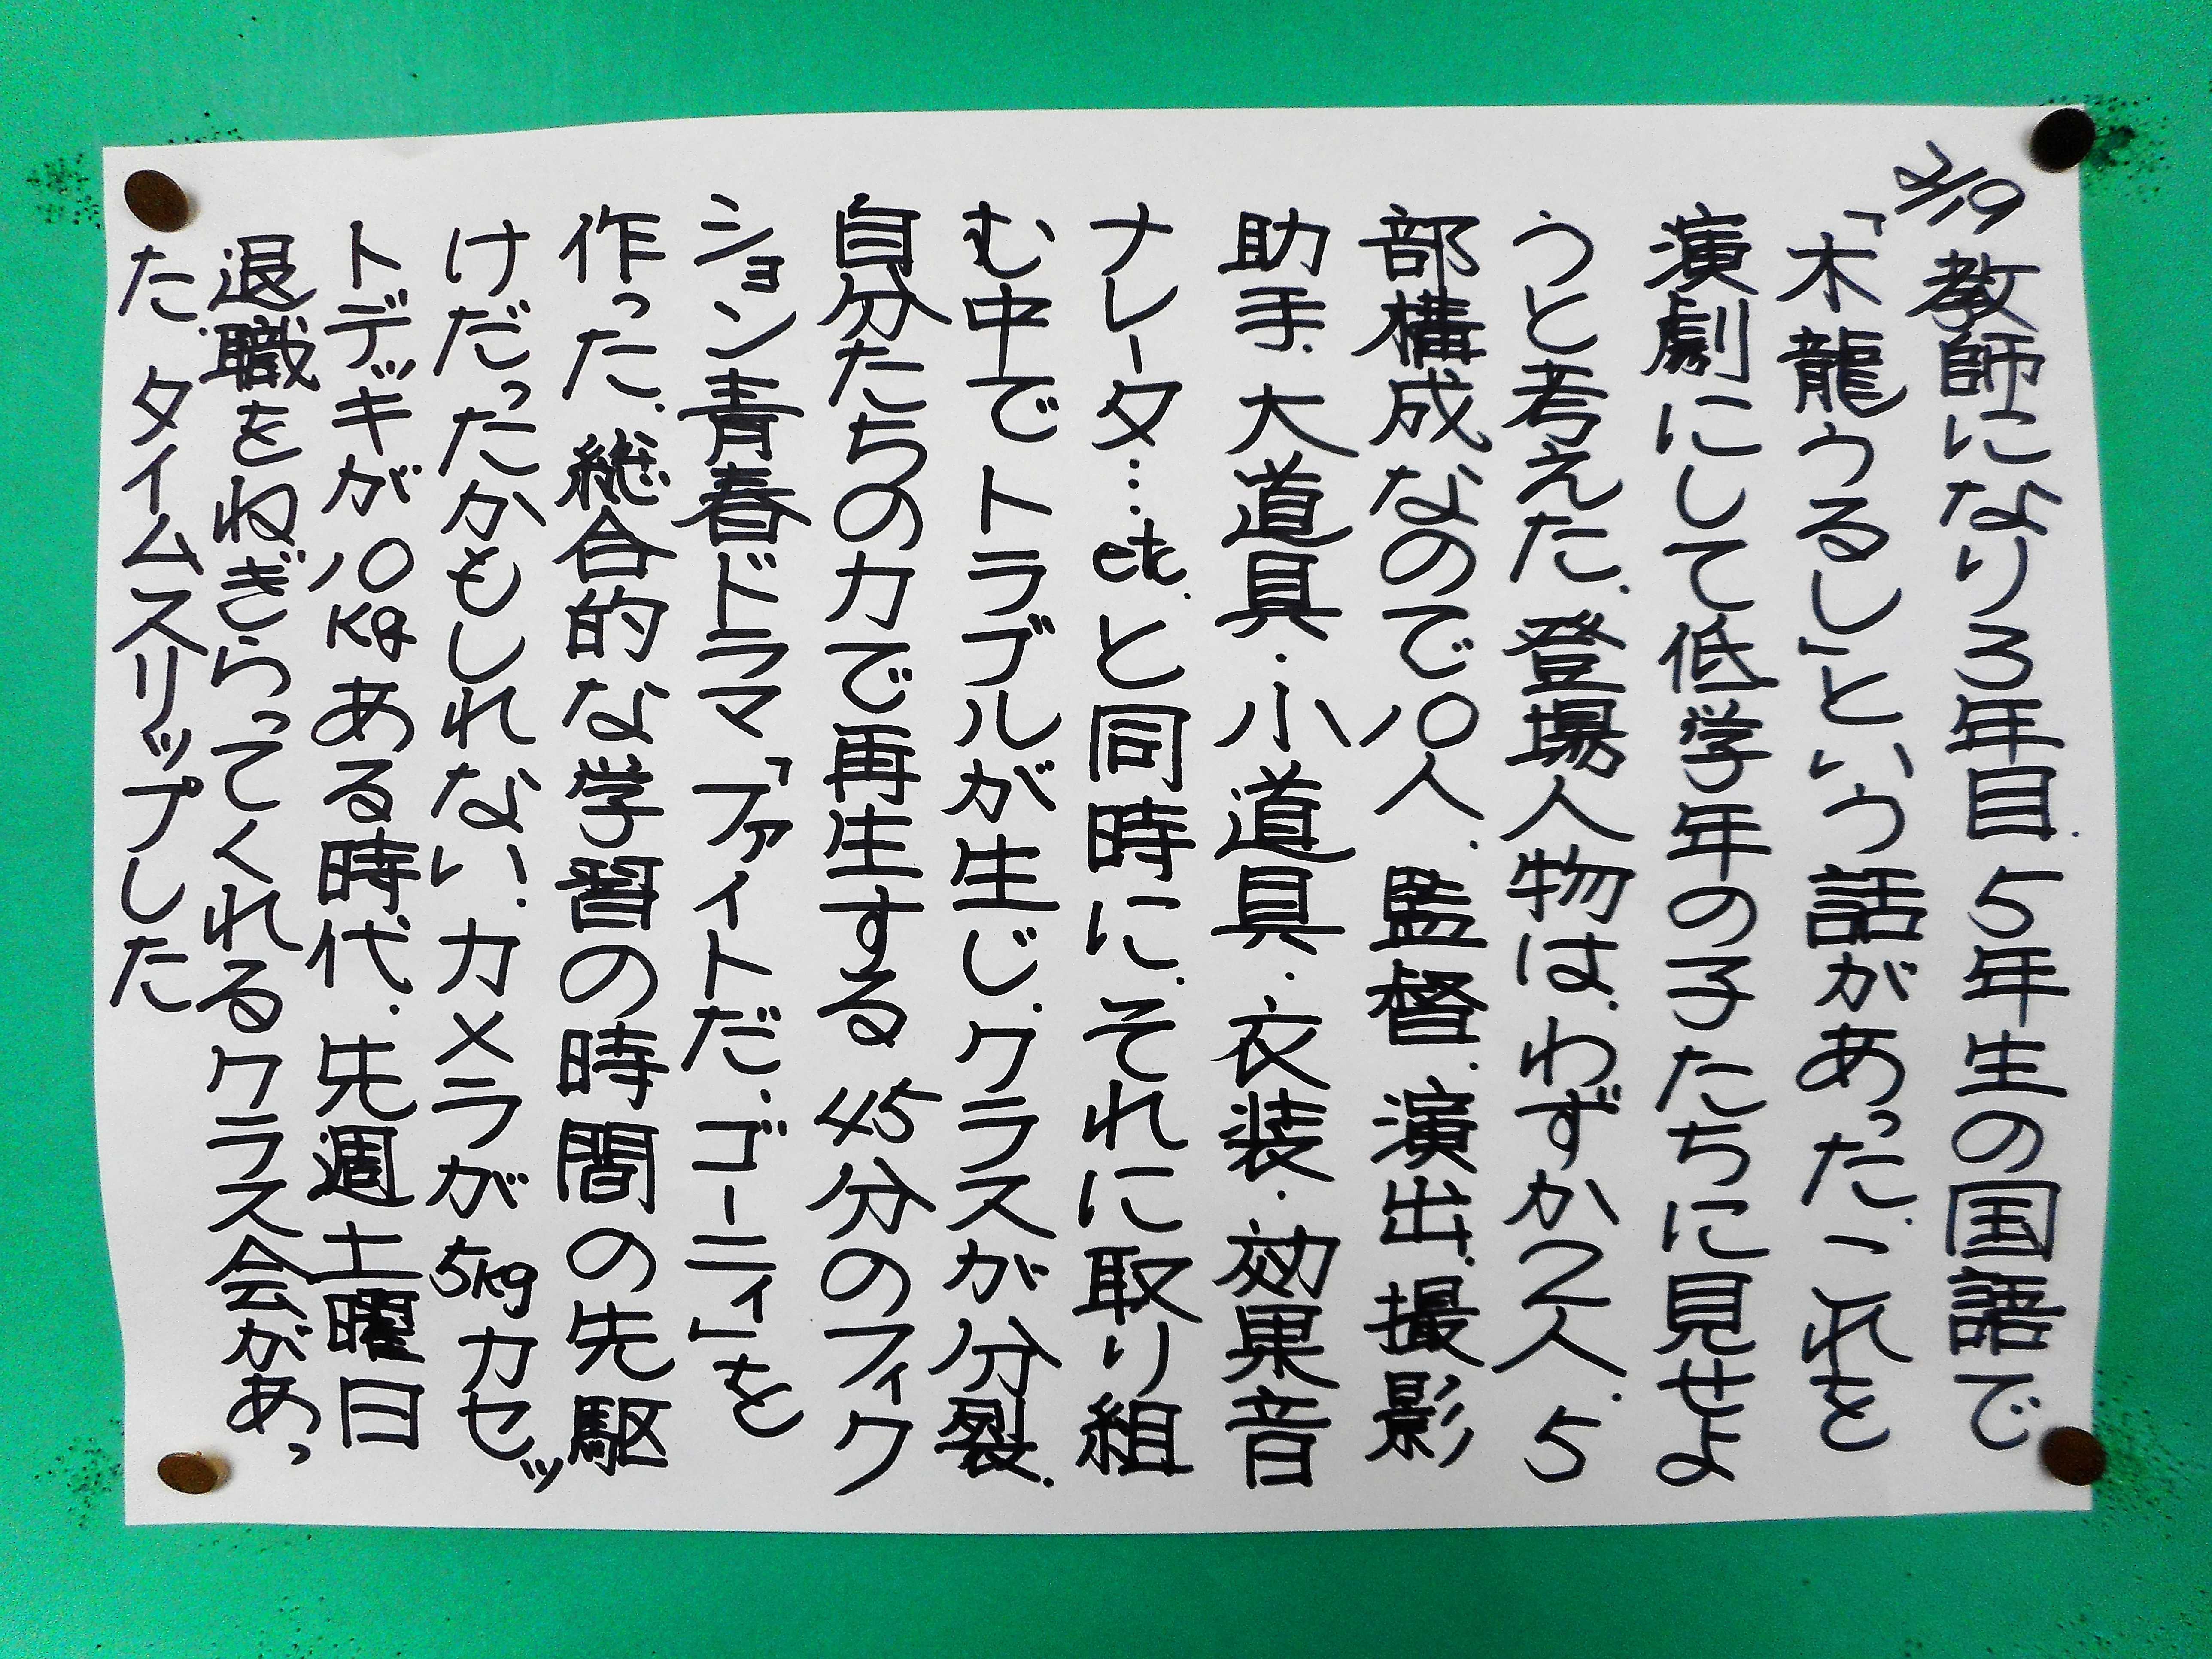 2/19 教師になり3年目、5年生の国語で
「木龍うるし」という話があった、これを
演劇にして低学年の子たちに見せよ
うと考えた、登場人物は、わずか2人、5
部構成なので10人、監督、演出、撮影
助手、大道具・小道具・衣装・効果音
ナレータ…etc.と同時に、それに取り組
む中でトラブルが生じ、クラスが分裂、
自分たちの力で再生する45分のフィク
ション青春ドラマ「ファイトだ、ゴーニィ」を
作った、総合的な学習の時間の先駆
けだったかもしれない、カメラが5kgカセッ
トデッキが10kgある時代、先週土曜日
退職をねぎらってくれるクラス会があっ
た、タイムスリップした